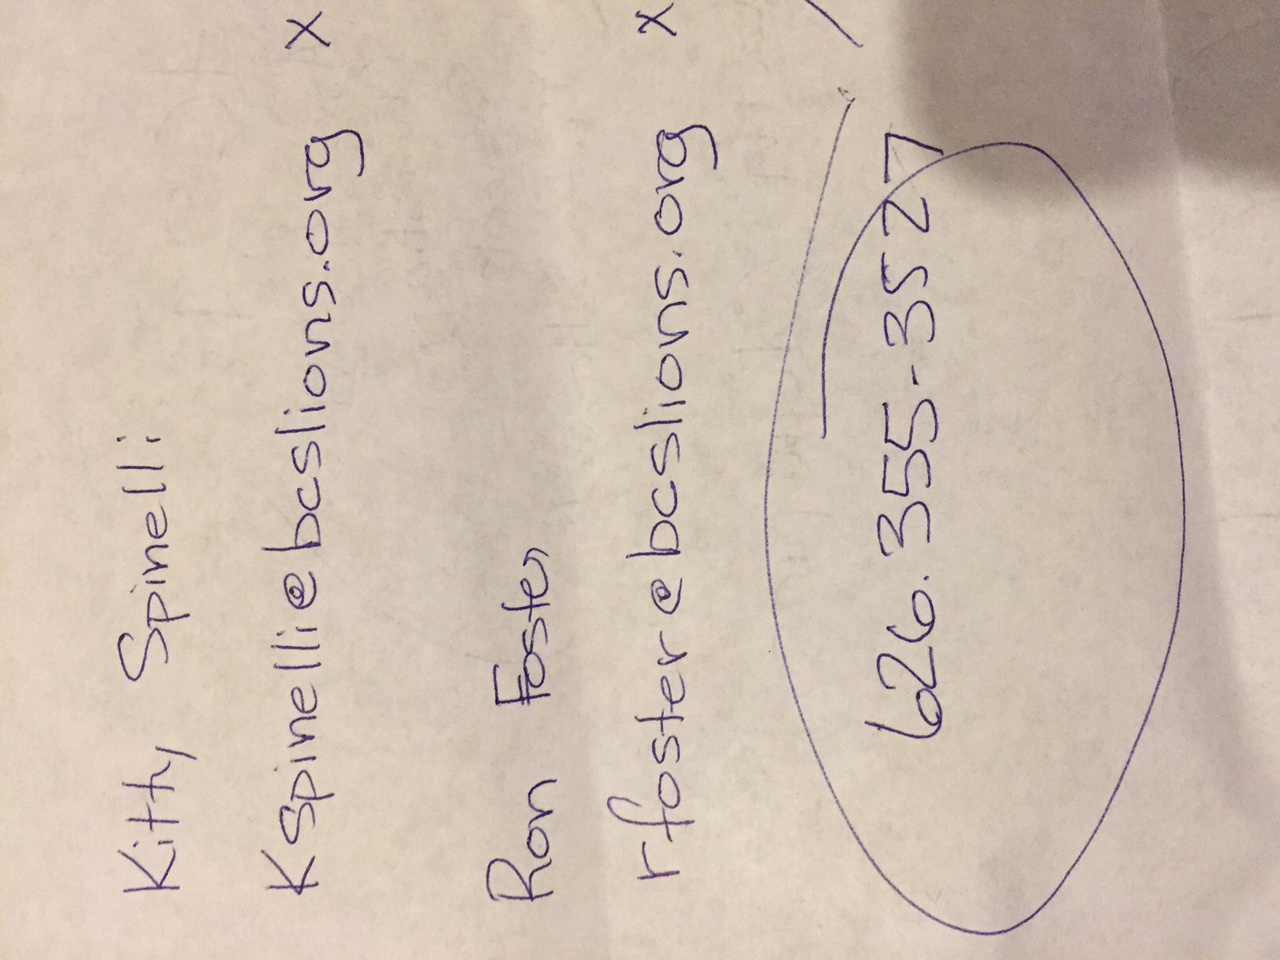 Kitty Spinelli
Kspinelli@bcslions.org X
Ron Foster
rfoster@bcslions.org X
626.355-3527